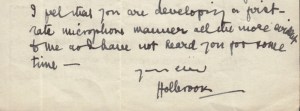 I feel that you are developing a first-
rate microphone manner all the more
to me as I have not heard you for some
time —
Yours ever
Holbrook